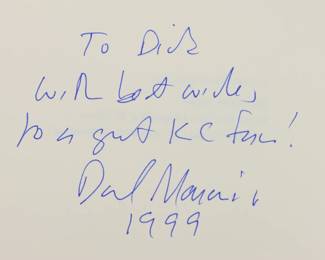 To Dick
with best wishes,
to a great KC fan!
1999